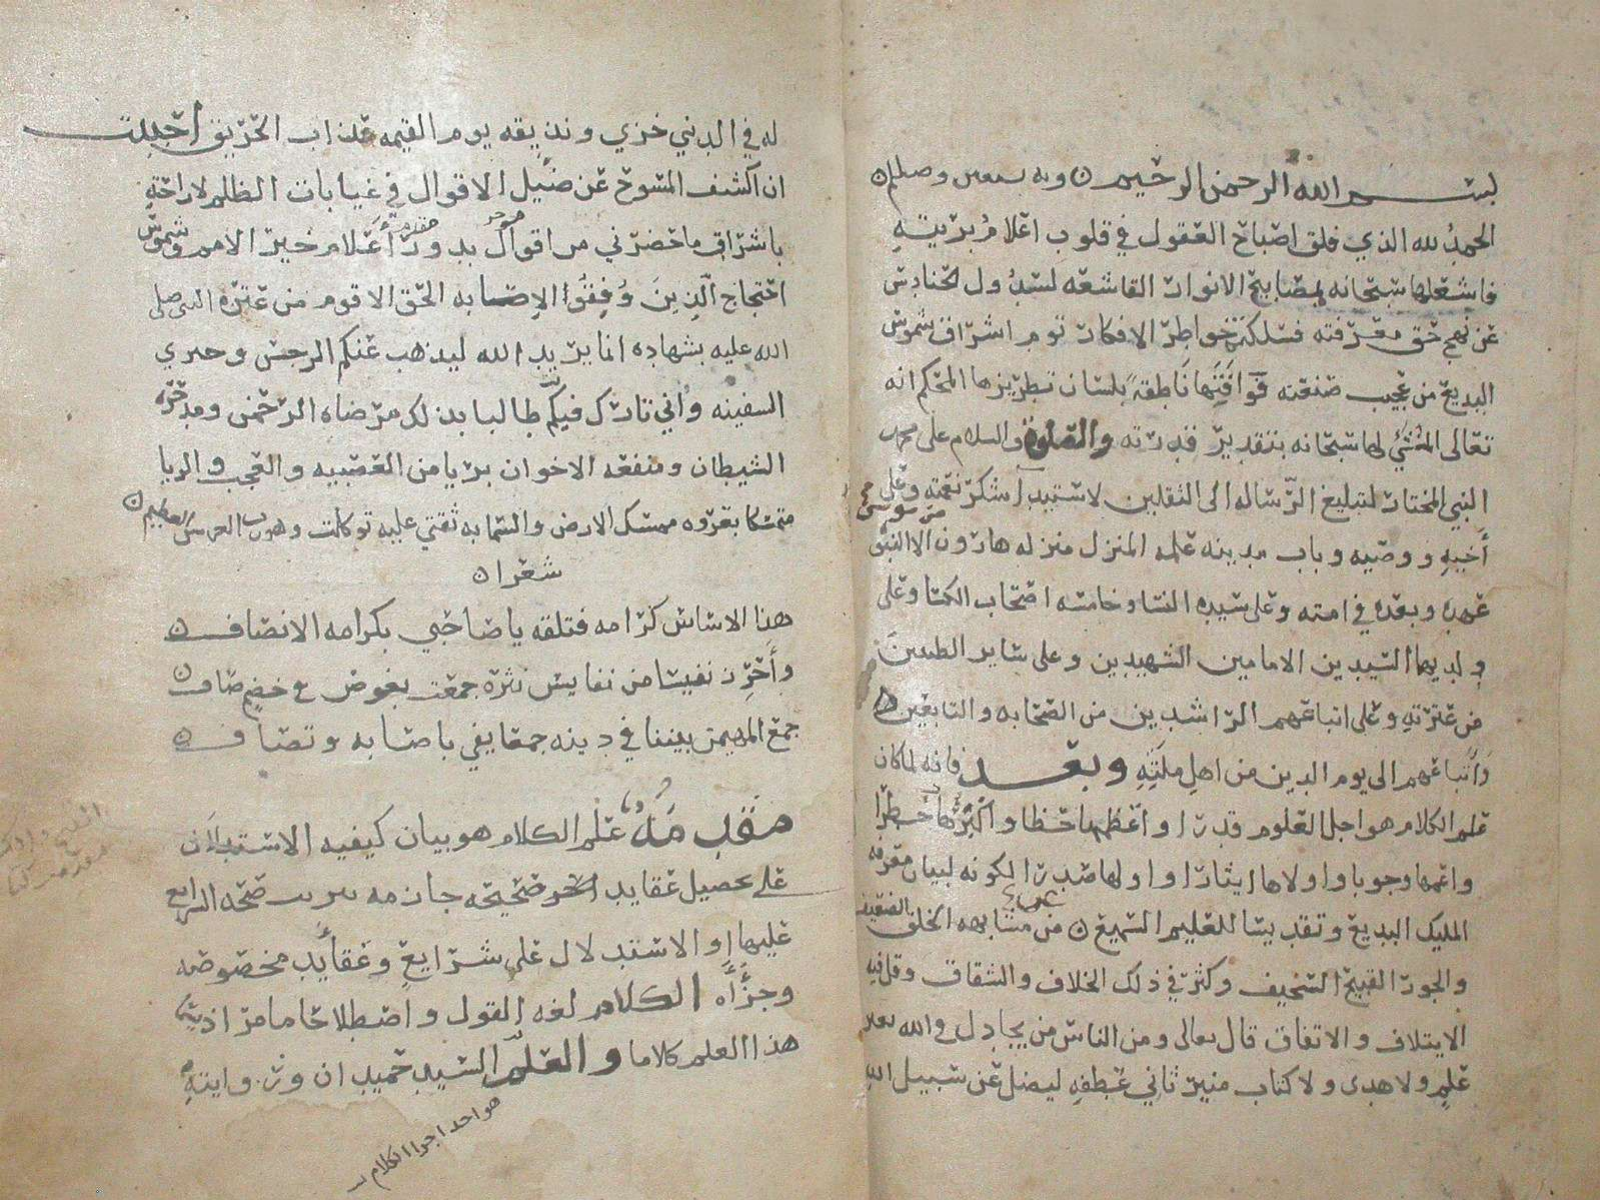 بسم الله الرحمن الرحيم ن وبه نستعين وصلى
الحمد لله الذي فلق اصباح العقول في قلوب اعلام بريته
فاشعلها سبحانه بمصابيح الانوار القاشعه لسدول الحنادس
عن نهج حق معرفته فسلكت خواطر الافكار توم اشراق شموس
البديع من عجيب صنعته فوافتها ناطقة بلسان تطريزها المحكم انه
تعالى المنشئ لها سبحانه بتقدير قدرته والصلوة والسلام على محمد
النبي المختار لتبليغ الرساله الى الثقلين لاستبدا شكر نعمته وعلى
أخيه ووصيه وباب مدينه علمه المنزل منزله هارون الا النبوة
عهده وبعده في امته وعلى سيده النسا وخامسه اصحاب الكسا وعلى
ولديهما السيدين الامامين الشهيدين وعلى ساير الطيبين
من عترته وعلى اتباعهم الراشدين من الصحابه والتابعين
وأتباعهم الى يوم الدين من اهل ملته وبعد فانه لما كان
علم الكلام هو اجل العلوم قدرا واعظمها حظا واكبرها خطرا
واعمها وجوبا واولاها ايثارا واولها صدرا لكونه لبيان معرفه
المليك البديع وتقديسا للعليم السميع ن من مشابهه الخلق الضعيف
والجور القبيح السخيف وكثر في ذلك الخلاف والشقاق وقل فيه
الايتلاف والاتفاق قال تعالى ومن الناس من يجادل في الله بغير
علم ولا هدى ولا كتاب منير ثاني عطفه ليضل عن سبيل الله
له في الدنيى خزي ونذيقه يوم القيمه عذاب الحريق احببت
ان اكشف المسوح عن ضئيل الاقوال في غيابات الظلم لاراحة
باشراق ما حضرني من اقوال بدور أعلام خير الامم وشموس
احتجاج الذين وفقوا لاصابه الحق الاقوم من عترة النبي صلى
الله عليه بشهاده انما يريد الله ليذهب عنكم الرجس وخبري
السفينه واني تارك فيكم طالبا بذلك مرضاه الرحمن ومدحرة
الشيطان ومنفعه الاخوان بريا من العصبيه والعجب والريا
متمسكا بعروه ممسك الارض والسما به ثقتي عليه توكلت وهو رب العرش العظيم ن
شعرا ن
هذا الاساس كرامه فتلقه يا صاحبي بكرامه الانصاف ن
وأحرز نفيسا من نفايس نثره جمعت بغوص في خضم صاف ن
جمع المهيمن بيننا في دينه جمعا يفي باصابه وتصاف ن
مقدمة علم الكلام هو بيان كيفيه الاستدلال
على تحصيل عقايد صحيحه جازمه صحه الشرايع
عليها او الاستدلال على شرايع وعقايد مخصوصه
وجزأه الكلام لغه القول واصطلاحا ما مر اذ
هذا العلم كلاما والعلم السيد حميدان ورواية
هو احد اجزا الكلام